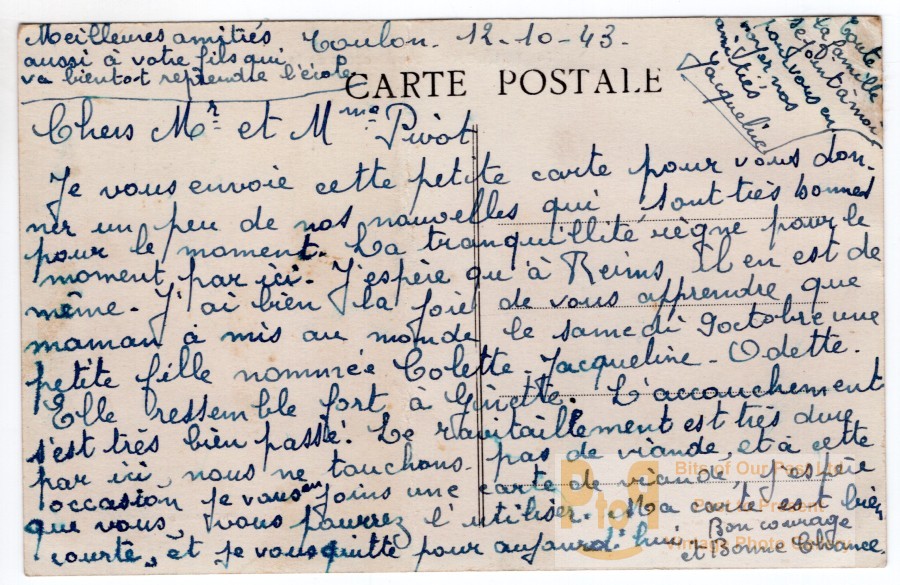 Meilleures amitiés
aussi à votre fils qui
va bientot reprendre l'école
Toulon. 12-10-43.
Toute
la famille
se joint à moi
pour vous en
voyer nos
amitiés
Jacqueline
CARTE POSTALE
Chers Mr et Mme Pivot
Je vous envoie cette petite carte pour vous don-
ner un peu de nos nouvelles qui sont très bonnes
pour le moment. La tranquillité règne pour le
moment par ici. J'espère qu'à Reims il en est de
même. J'ai bien la joie de vous apprendre que
maman à mis au monde le samedi 9 octobre une
petite fille nommée Colette-Jacqueline-Odette.
Elle ressemble fort à Ginette. L'accouchement
s'est très bien passé. Le ravitaillement est très dure
par ici, nous ne touchons pas de viande, et à cette
occasion je vous en joins une carte de viande, j'espère
que vous vous pourrez l'utiliser. Ma carte est bien
courte, et je vous quitte pour aujourd'hui
Bon courage
et Bonne Chance.
PtoP
Bits of Our Past
Past to Present
Vintage Photo